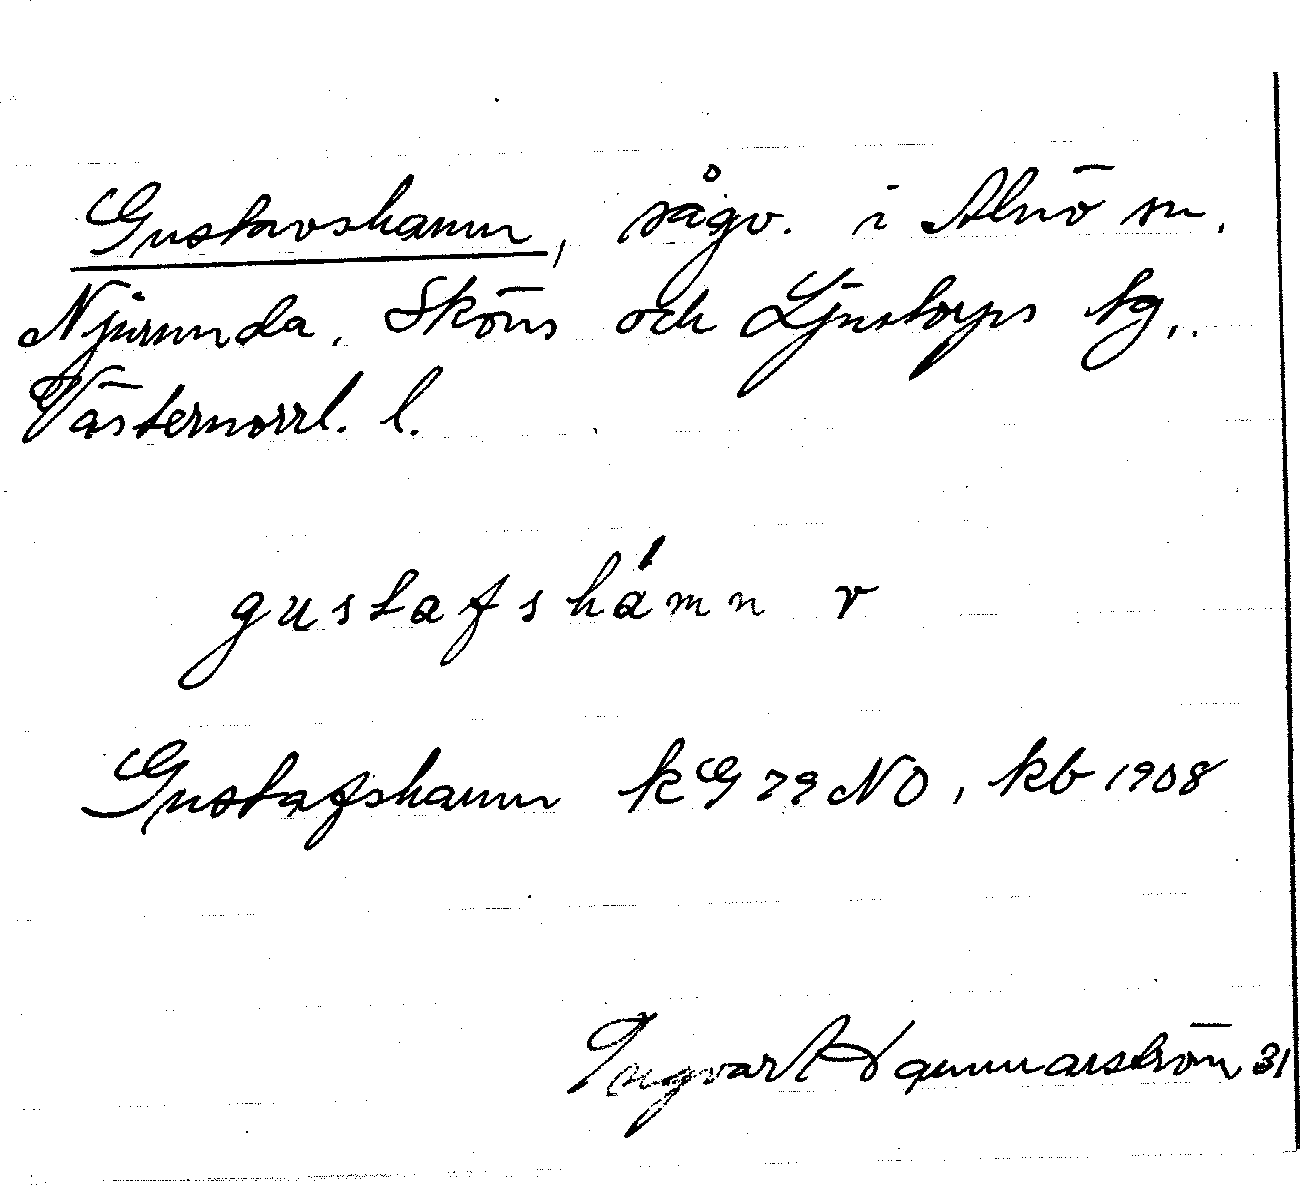 Gustavshamn, sågv. i Alnö sn,
Njurunda, Sköns och Ljustorps tg,
Västernorrl. l.
gustafshámn r
Gustafshamn kG 79 NO, kb 1908
Ingvar 31